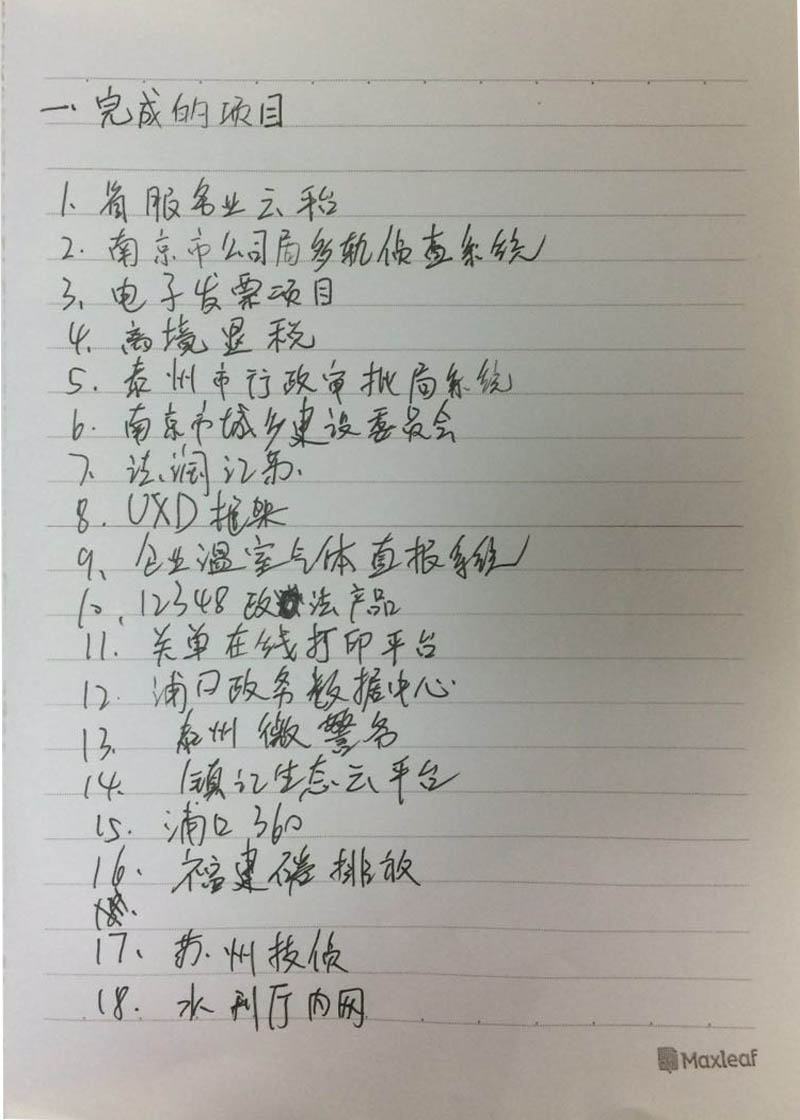 一、完成的项目
1. 省服务业云平台
2. 南京市公司局多轨侦查系统
3、电子发票项目
4、离境退税
5. 泰州市行政审批局系统
6. 南京市城乡建设委员会
7. 法润江苏.
8. UXD框架
9、企业温室气体直报系统
10、12348政法产品
11. 关单在线打印平台
12. 浦口政务数据中心
13. 泰州微警务
14. 镇江生态云平台
15. 浦口360
16. 福建碳排放
17、苏州技侦
18. 水利厅内网
Maxleaf